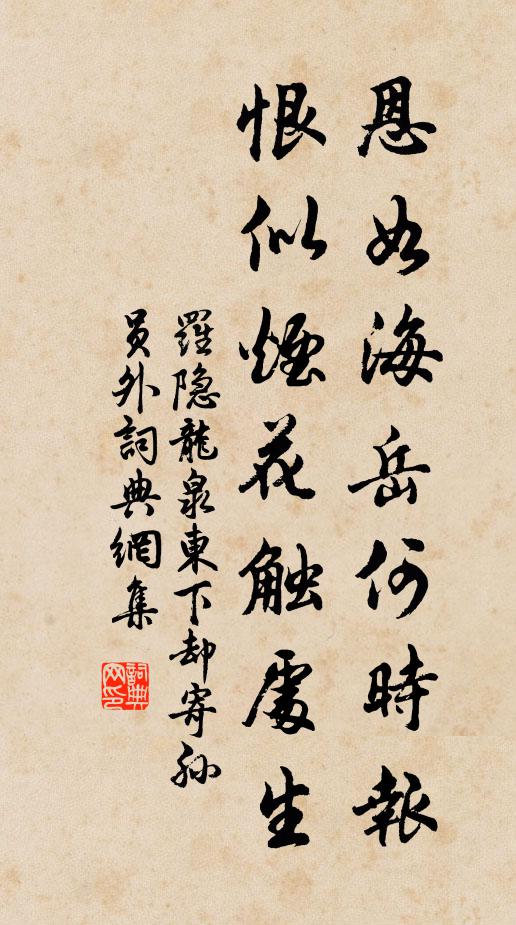 恩如海岳何時報
恨似煙花触處生
羅隐龍泉東下却寄孙
員外詞典網集
詞典
网印